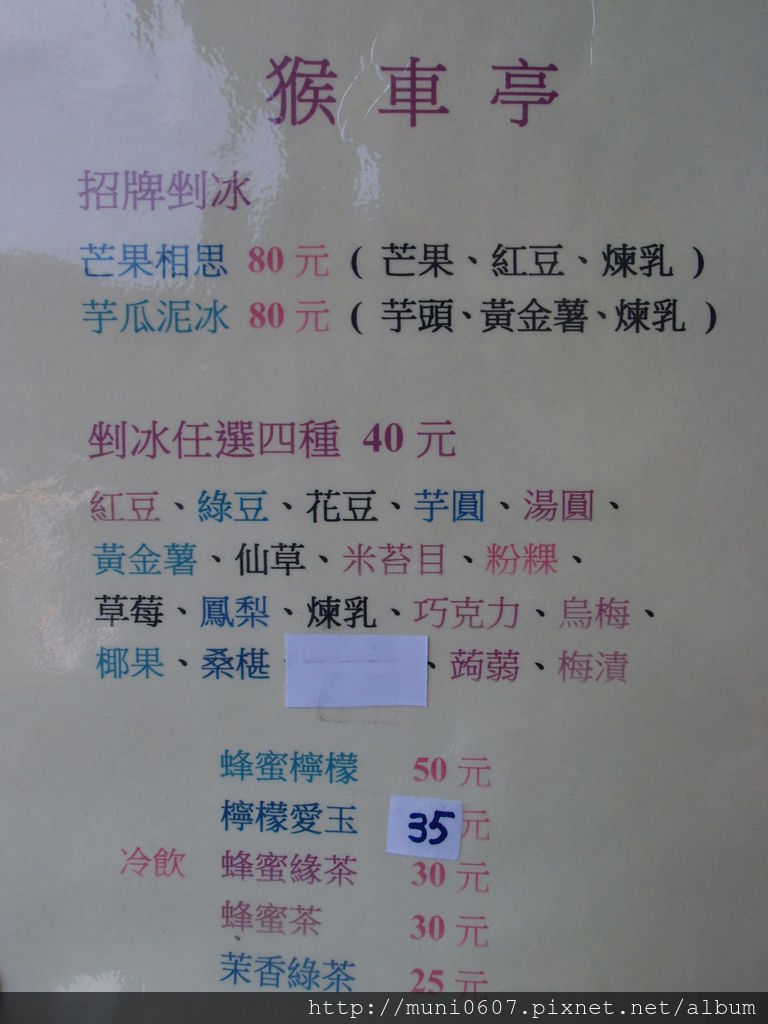 猴車亭
招牌剉冰
芒果相思 80 元 ( 芒果、紅豆、煉乳 )
芋瓜泥冰 80 元 ( 芋頭、黃金薯、煉乳 )
剉冰任選四種 40 元
紅豆、綠豆、花豆、芋圓、湯圓、
黃金薯、仙草、米苔目、粉粿、
草莓、鳳梨、煉乳、巧克力、烏梅、
椰果、桑椹 、蒟蒻、梅漬
蜂蜜檸檬 50 元
檸檬愛玉 35 元
冷飲 蜂蜜緣茶 30 元
蜂蜜茶 30 元
茉香綠茶 25 元
http://muni0607.pixnet.net/album